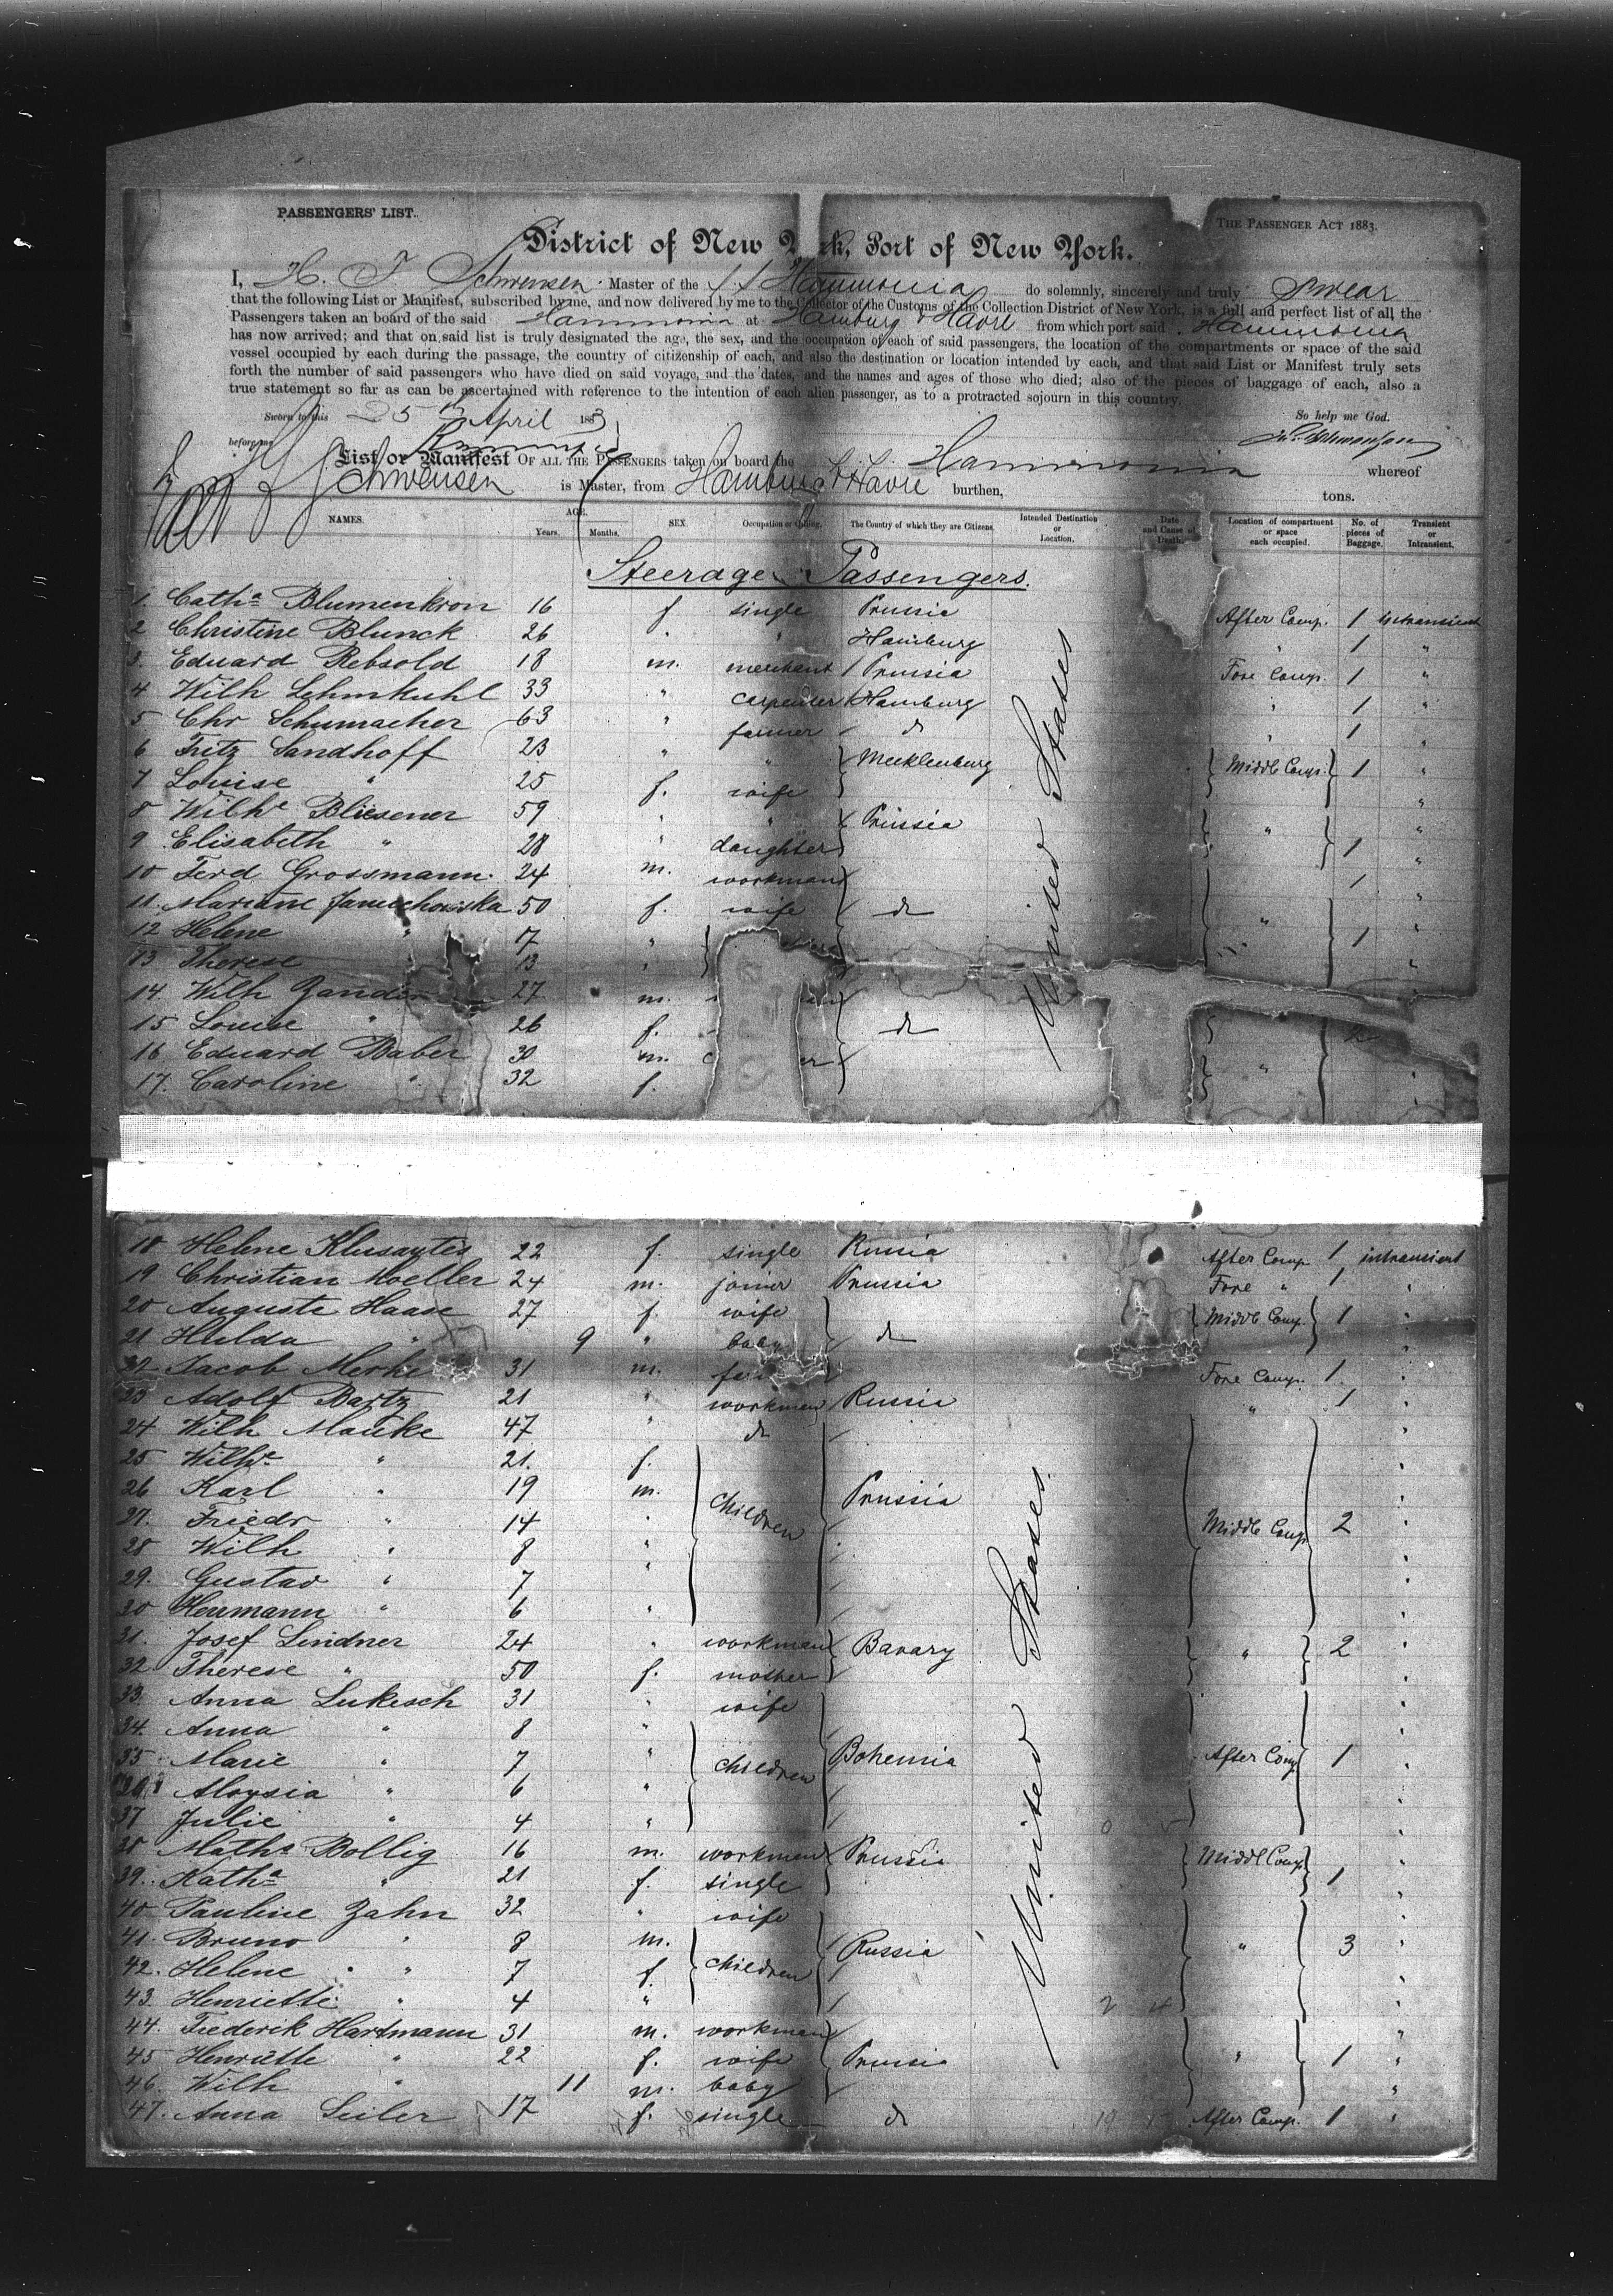 PASSENGERS' LIST.
THE PASSENGER ACT 1883.
District of New York, Port of New York.
I, H. F. Schwensen Master of the S. S. Hammonia do solemnly, sincerely and truly Swear
that the following List or Manifest, subscribed by me, and now delivered by me to the Collector of the Customs of the Collection District of New York, is a full and perfect list of all the
Passengers taken on board of the said Hammonia at Hamburg & Havre from which port said Hammonia
has now arrived; and that on said list is truly designated the age, the sex, and the occupation of each of said passengers, the location of the compartments or space of the said
vessel occupied by each during the passage, the country of citizenship of each, and also the destination or location intended by each, and that said List or Manifest truly sets
forth the number of said passengers who have died on said voyage, and the dates, and the names and ages of those who died; also of the pieces of baggage of each, also a
true statement so far as can be ascertained with reference to the intention of each alien passenger, as to a protracted sojourn in this country.
Sworn to this 25th April 1883
So help me God.
before me
List or Manifest OF ALL THE PASSENGERS taken on board the S. S. Hammonia whereof
Schwensen is Master, from Hamburg & Havre burthen, tons.
NAMES. AGE. Years. Months. SEX Occupation or Calling. The Country of which they are Citizens. Intended Destination or Location. Date and Cause of Death. Location of compartment or space each occupied. No. of pieces of Baggage. Transient or Intransient.
Steerage Passengers.
1. Catha Blumenkron 16 f. single Prussia After Comp. 1 intransient
2 Christine Blunck 26 " " Hamburg " 1 "
3. Eduard Rebsold 18 m. merchant Prussia Fore Comp. 1 "
4 Wilh Lehmkuhl 33 " carpenter Hamburg " 1 "
5 Chr Schumacher 63 " farmer do " 1 "
6 Fritz Sandhoff 23 " " Mecklenburg Middle Comp. 1 "
7 Louise " 25 f. wife "
8 Wilhe Bliesener 59 " " Prussia " "
9 Elisabeth " 28 " daughter 1 "
10 Ferd Grossmann 24 m. workman 1 "
11. Mariane 50 f. wife do " "
12 Helene " 17 " 1 "
13 Therese 13 " "
14. Wilh Zander 27 m.
15 Louise " 26 f. do 2
16 Eduard Baber 30 m. " "
17. Caroline " 32 f. "
United States
18 Helene Klusaytes 22 f. single Russia After Comp 1 intransient
19. Christian Moeller 24 m. joiner Prussia Fore " 1 "
20 Auguste Haase 27 f. wife Middle Comp. 1 "
21 Hulda " 9 " baby do "
22 Jacob Merke 31 m. Fore Comp. 1 "
23 Adolf Bartz 21 " workman Russia " 1 "
24 Wilh Mauke 47 " do "
25 Wilhe " 21. f. "
26 Karl " 19 m. children Prussia "
27. Friedr " 14 " Middle Comp 2 "
28 Wilh " 8 " "
29. Gustav " 7 " "
30 Hermann " 6 " "
31. Josef Lindner 24 " workman Bavary " 2 "
32 Therese " 50 f. mother "
33. Anna Lukesch 31 " wife "
34. Anna " 8 " "
35 Marie " 7 " children Bohemia After Comp 1 "
36 Aloysia " 6 " "
37 Julie " 4 " "
38 Maths Bollig 16 m. workman Prussia Middl Comp. "
39. Katha " 21 f. single 1 "
40 Pauline Zahn 32 " wife "
41. Bruno " 8 m. children Russia " 3 "
42. Helene " 7 f. "
43. Henriette " 4 " "
44. Frederik Hartmann 31 m. workman "
45 Henriette " 22 f. wife Prussia " 1 "
46. Wilh " 11 m. baby "
47. Anna Seiler 17 f. single do After Comp. 1 "
United States